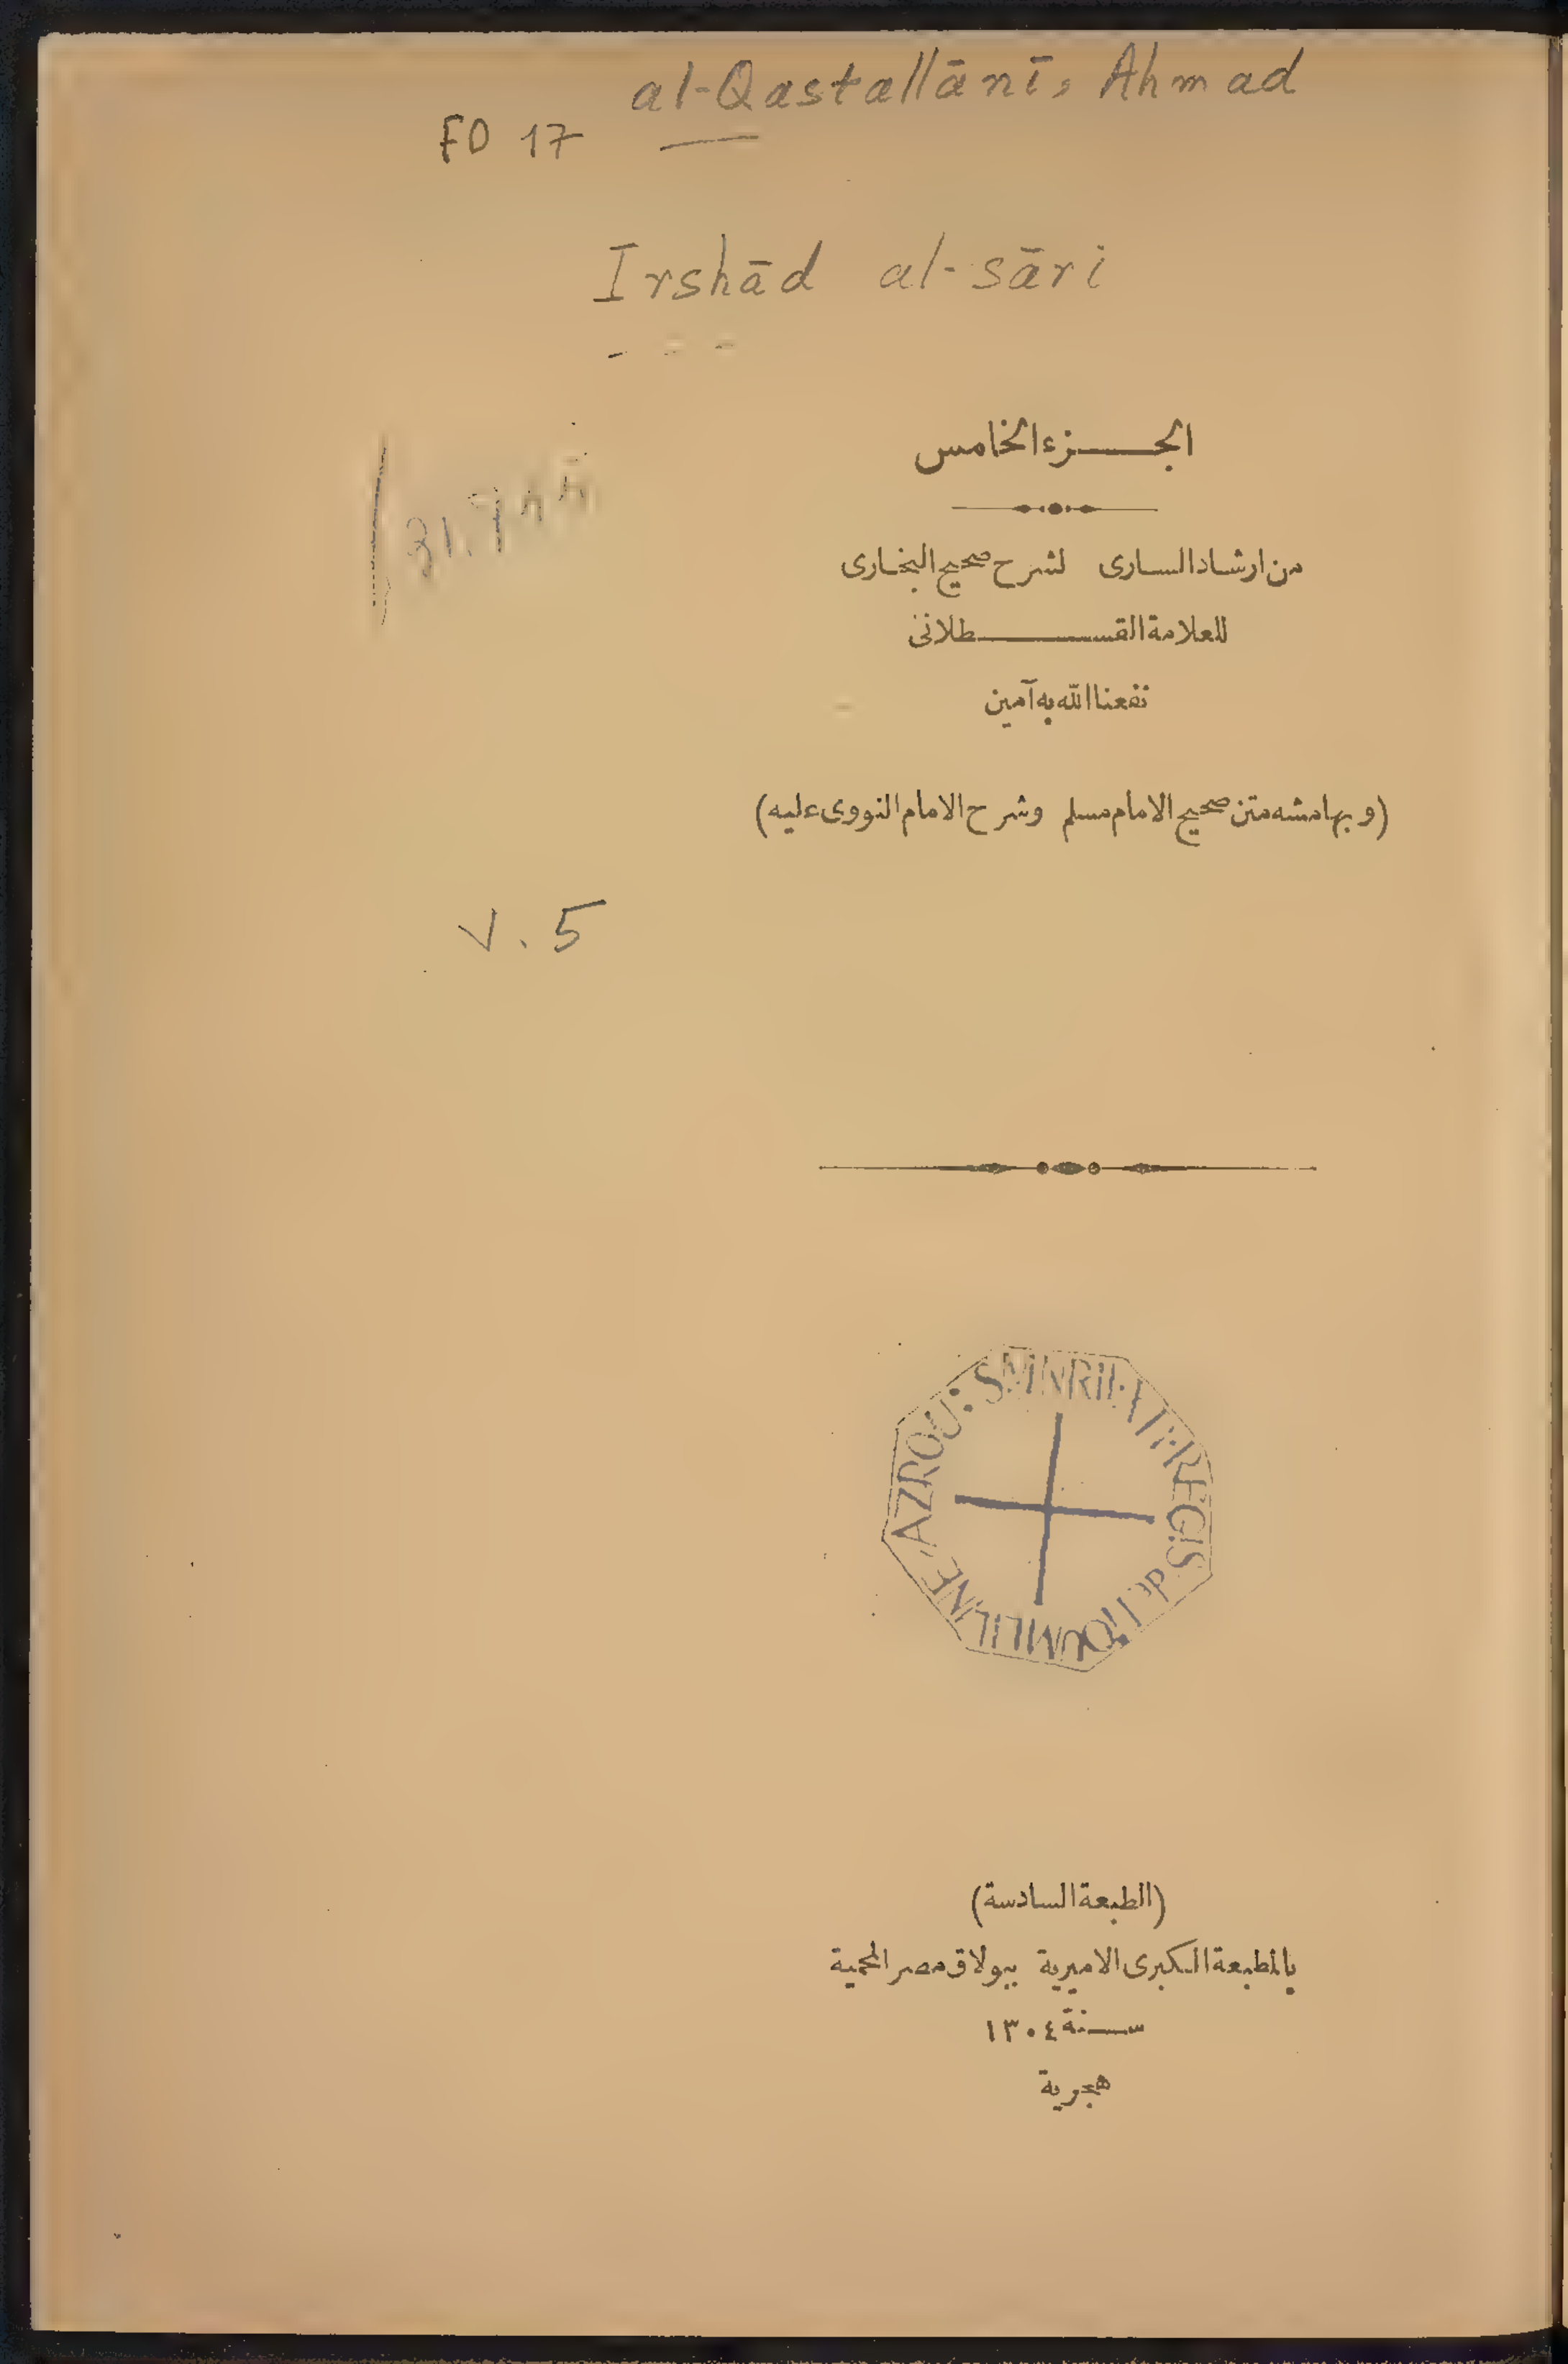 al-Qastallānī, Ahmad
FD 17
Irshād al-sāri
الجـــزء الخامس
من ارشاد السارى لشرح صحيح البخارى
للعلامة القســـطلانى
نفعنا الله به آمين
(وبهامشه متن صحيح الامام مسلم وشرح الامام النووى عليه)
v. 5
AZROU
REGIS
(الطبعة السادسة)
بالمطبعة الكبرى الاميرية ببولاق مصر المحمية
ســنة ١٣٠٤
هجرية